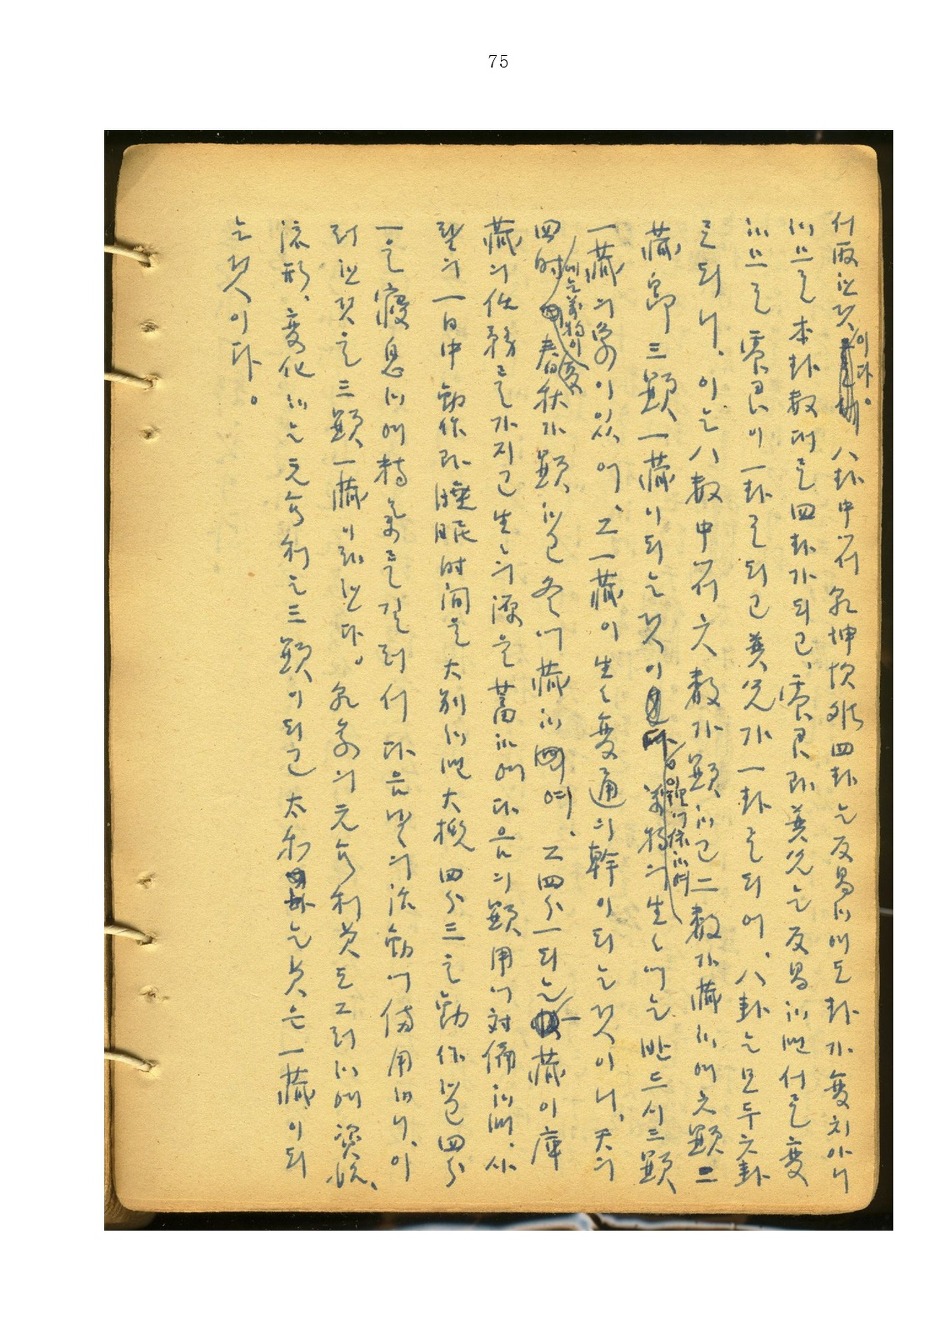 75
서 取한 것이다. 八卦中에서 乾坤坎離四卦는 反易하여도 卦가 變치 아니
하므로 本卦數대로 四卦가 되고, 震艮과 巽兌는 反易하면 서로 變
하므로 震艮이 一卦로 되고 巽兌가 一卦로 되어, 八卦는 모두 六卦
로 되니, 이는 八數中에서 六數가 顯하고 二數가 藏하여 六顯二
藏 卽 三顯一藏이 되는 것이 萬物의 生生에는 반드시 三顯
一藏의 象이 있어, 그 一藏이 生生變通의 幹이 되는 것이니, 天의
四時에는 萬物이 春夏秋가 顯하고 冬이 藏하여, 그 四分一되는 藏이 庫
藏의 任務를 가지고 生의 源을 蓄하여 다음의 顯用에 對備하며, 사
람의 一日中 動作과 睡眠時間을 大別하면 大槪 四分三은 動作하고 四分
一은 寢息하여 精氣를 길러서 다음날의 活動에 備用하니, 이
러한 것은 三顯一藏이라 한다. 乾彖의 元亨利貞도 그러하여 資始,
流形, 變化하는 元亨利는 三顯이 되고 太和하는 貞은 一藏이 되
는 것이다.